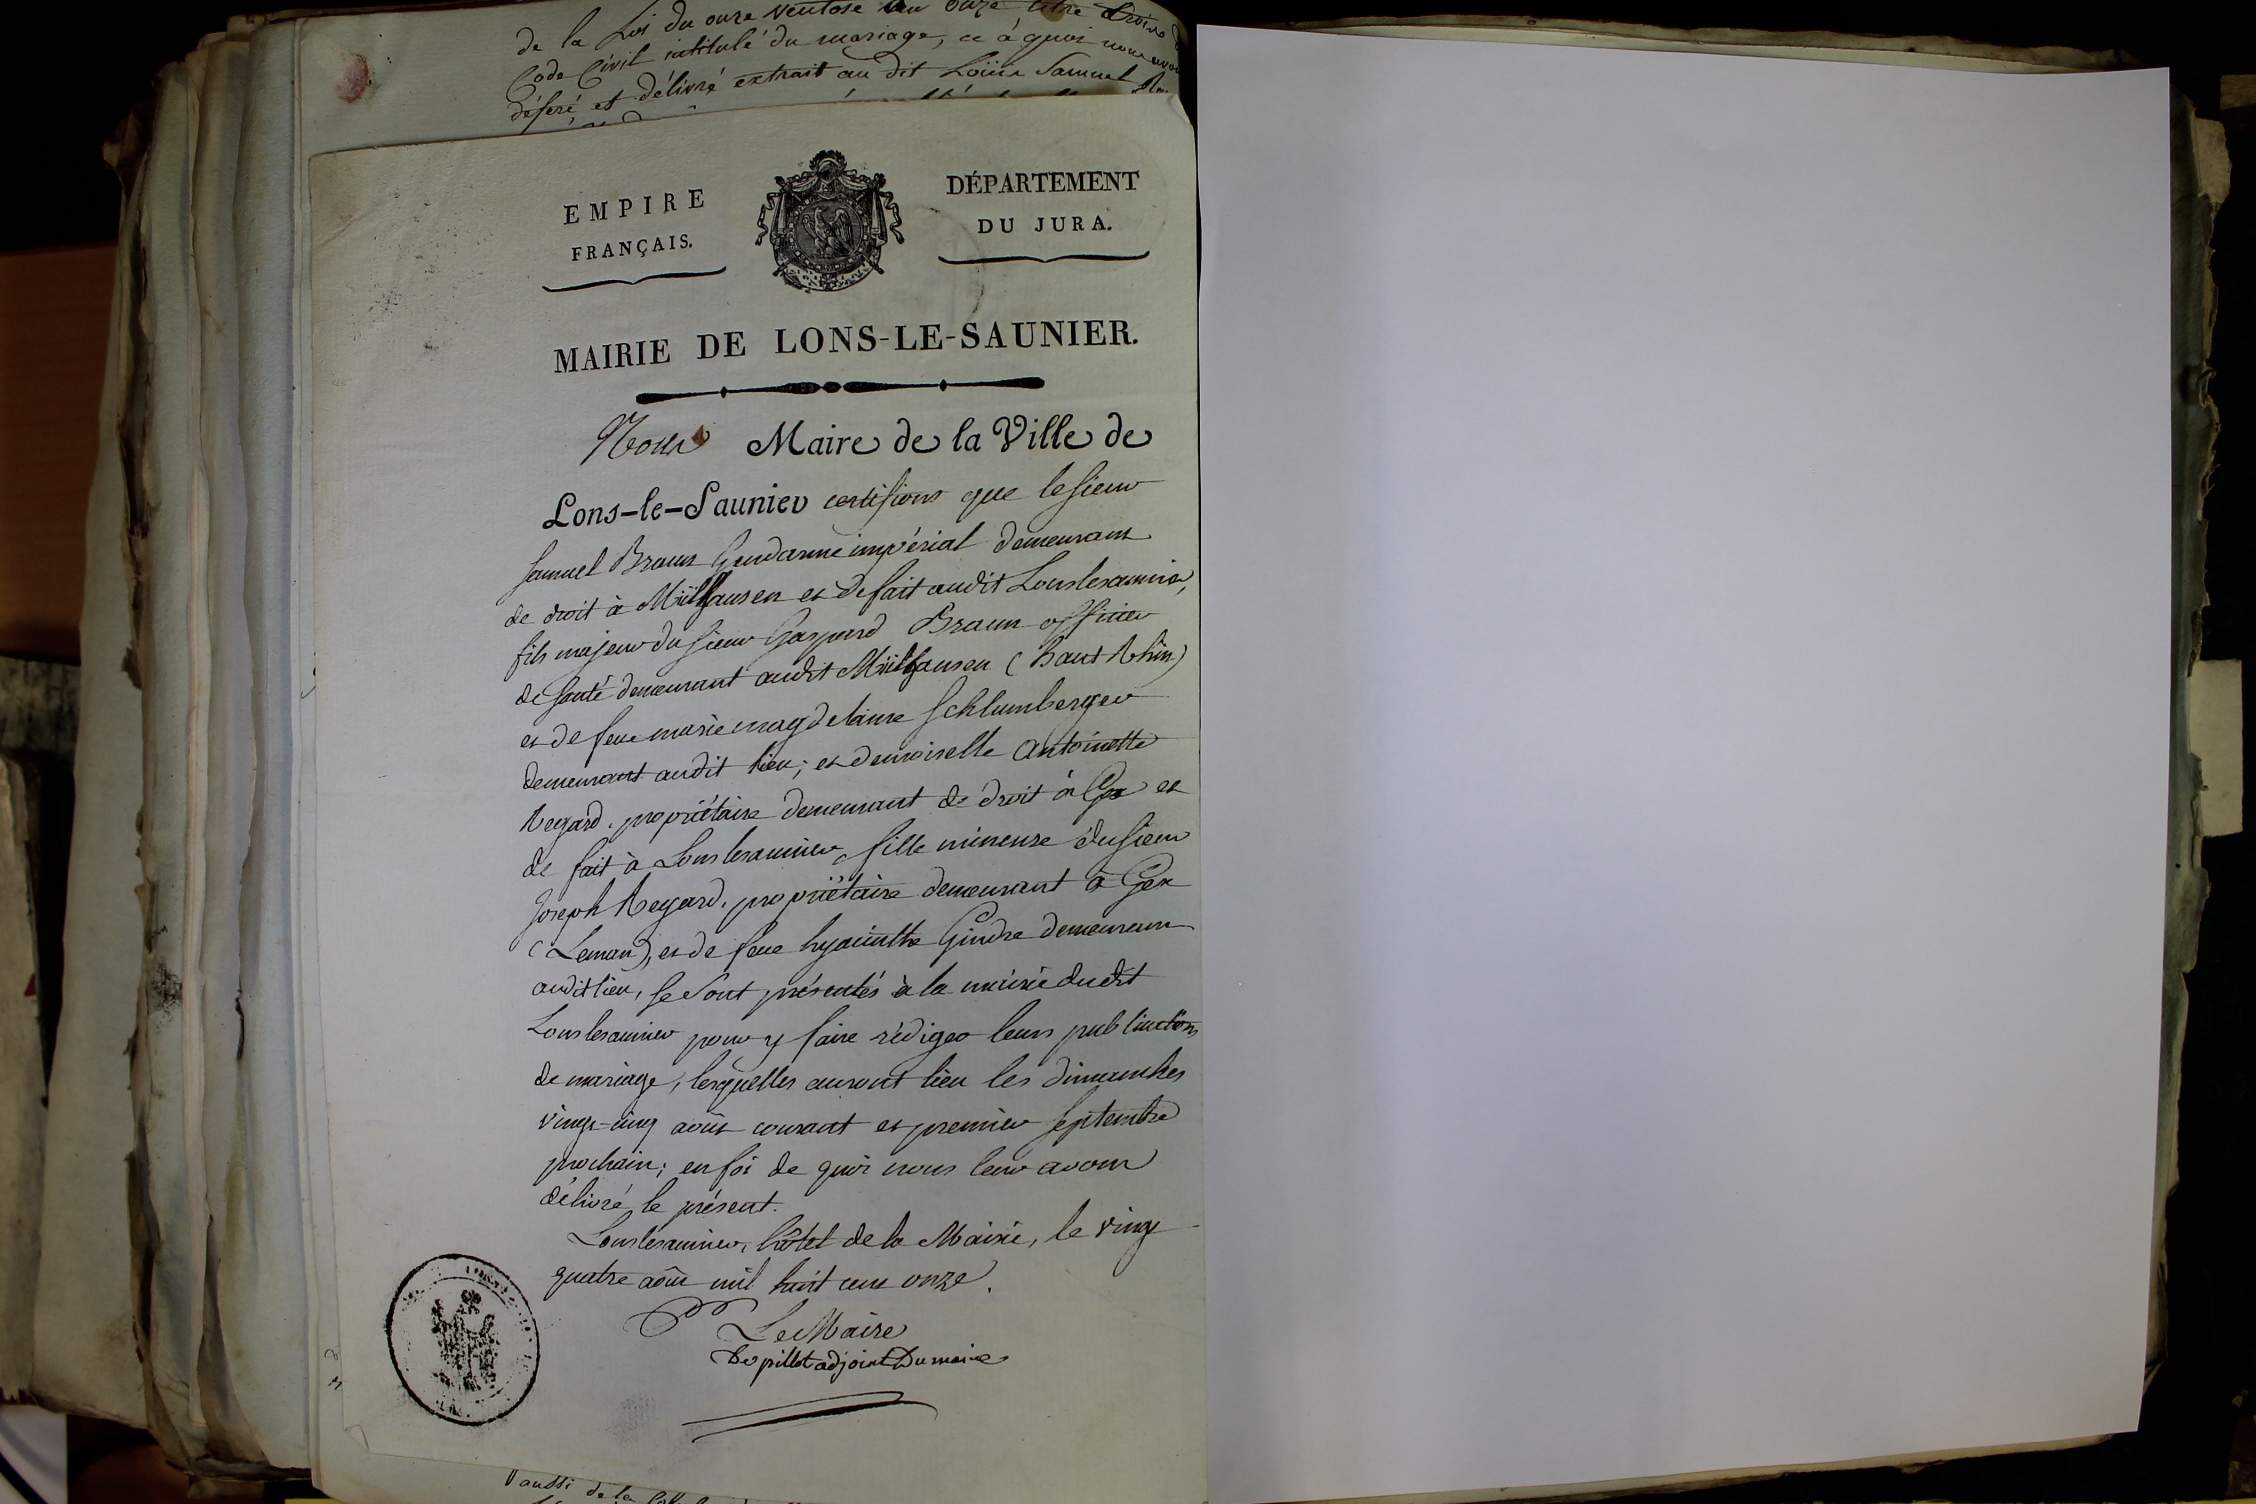 de la Loi du onze ventose an onze titre
Code Civil intitulé du mariage, ce à quoi nous avons
déféré, et délivré extrait au dit Samuel
EMPIRE
FRANÇAIS.
DÉPARTEMENT
DU JURA.
MAIRIE DE LONS-LE-SAUNIER.
Nous Maire de la Ville de
Lons-le-Saunier certifions que le sieur
Samuel Braun Gendarme impérial demeurant
de droit à Mülhausen et de fait audit Lonslesaunier,
fils majeur du sieur Gaspard Braun officier
de santé demeurant audit Mülhausen (haut Rhin)
et de feue marie magdelaine Schlumberger
demeurant audit lieu; et demoiselle antoinette
Regard, propriétaire demeurant de droit à Gex et
de fait à Lonslesaunier, fille mineure du sieur
Joseph Regard, propriétaire demeurant à Gex
(Leman), et de feue hyacinthe Gindre demeurant
audit lieu, se sont présentés à la mairie dudit
Lonslesaunier pour y faire rédiger leurs publications
de mariage, lesquelles auront lieu les dimanches
vingt-cinq août courant et premier septembre
prochain; en foi de quoi nous leur avons
délivré le présent.
Lonslesaunier, hôtel de la Mairie, le vingt
quatre août mil huit cent onze.
Le Maire
adjoint Du maire
aussi de la